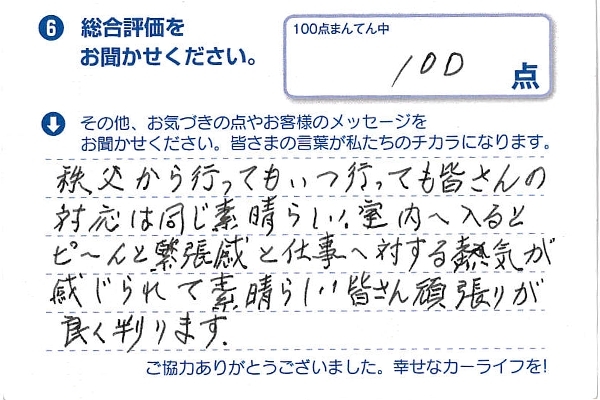 6 総合評価を
お聞かせください。
100点まんてん中
100点
その他、お気づきの点やお客様のメッセージを
お聞かせください。皆さまの言葉が私たちのチカラになります。
秩父から行ってもいつ行っても皆さんの
対応は同じ素晴らしい。室内へ入ると
ピ〜んと緊張感と仕事へ対する熱気が
感じられて素晴らしい皆さん頑張りが
良く判ります.
ご協力ありがとうございました。幸せなカーライフを!